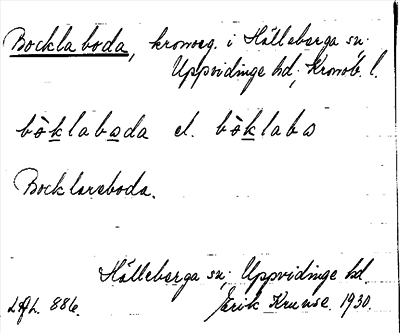 Bocklaboda, kronoeg. i Hälleberga sn.
Uppvidinge hd, Kronob. l.
bòklaboda el. bòklabo
Bocklareboda.
Hälleberga sn, Uppvidinge hd.
LAL. 886. Erik Kruuse. 1930.